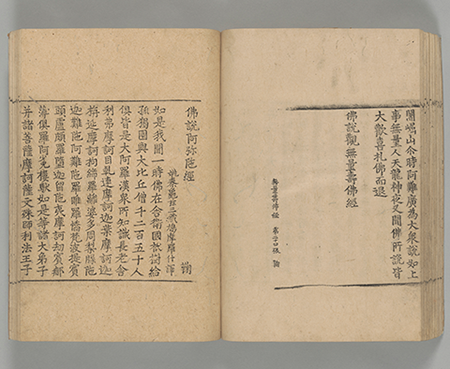 闍崛山尒時阿難廣為大衆說如上
事無量人天龍神夜叉聞佛所說皆
大歡喜礼佛而退
佛說觀無量壽佛經
佛說阿弥陁經
姚秦三藏鳩摩羅什譯
如是我聞一時佛在舍衛國祇樹給
孤獨園與大比丘僧千二百五十人
俱皆是大阿羅漢衆所知識長老舍
利弗摩訶目乹連摩訶迦葉摩訶迦
旃延摩訶拘絺羅離婆多周梨槃陁
迦難陁阿難陁羅睺羅憍梵波提賓
頭盧頗羅墮迦留陁夷摩訶劫賓那
薄俱羅阿㝹樓馱如是等諸大弟子
并諸菩薩摩訶薩文殊師利法王子